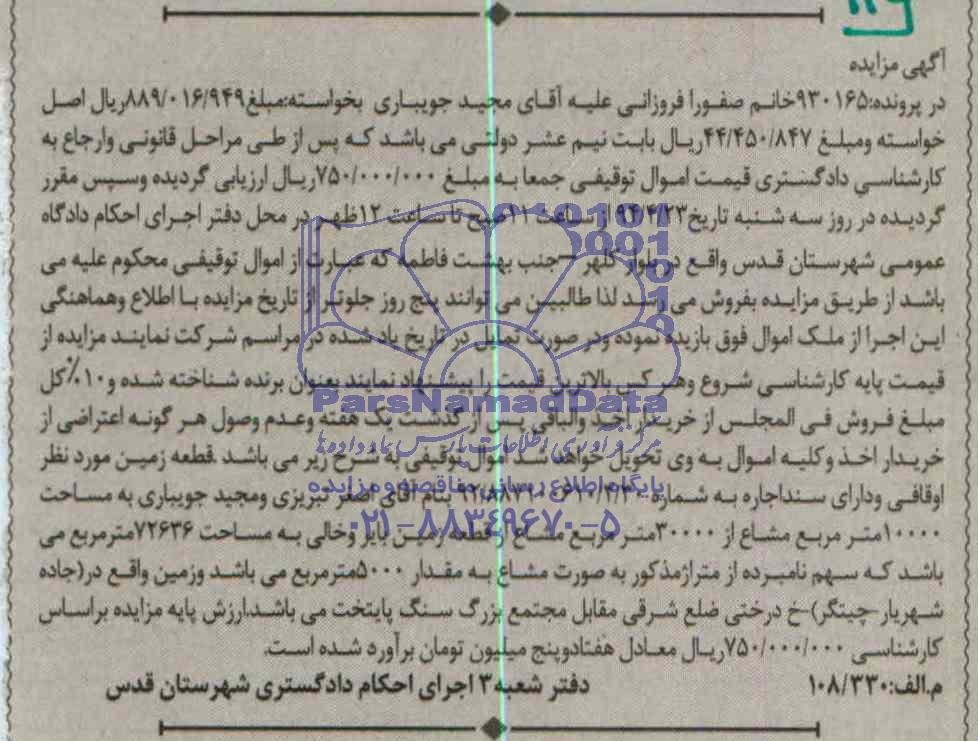 ۱۱۹
آگهی مزایده
در پرونده:۹۳۰۱۶۵خانم صفورا فروزانی علیه آقای مجید جویباری بخواسته:مبلغ۸۸۹/۰۱۶/۹۴۹ریال اصل
خواسته ومبلغ ۴۴/۴۵۰/۸۴۷ریال بابت نیم عشر دولتی می باشد که پس از طی مراحل قانونی وارجاع به
کارشناسی دادگستری قیمت اموال توقیفی جمعا به مبلغ ۷۵۰/۰۰۰/۰۰۰ریال ارزیابی گردیده وسپس مقرر
گردیده در روز سه شنبه تاریخ۹۴/۴/۲۳ از ساعت ۱۱صبح تا ساعت ۱۲ظهر در محل دفتر اجرای احکام دادگاه
عمومی شهرستان قدس واقع در بلوار کلهر –جنب بهشت فاطمه که عبارت از اموال توقیفی محکوم علیه می
باشد از طریق مزایده بفروش می رسد لذا طالبین می توانند پنج روز جلوتر از تاریخ مزایده با اطلاع وهماهنگی
این اجرا از ملک اموال فوق بازدید نموده ودر صورت تمایل در تاریخ یاد شده در مراسم شرکت نمایند مزایده از
قیمت پایه کارشناسی شروع وهر کس بالاترین قیمت را پیشنهاد نمایند بعنوان برنده شناخته شده و۱۰٪کل
مبلغ فروش فی المجلس از خریدار اخذ والباقی پس از گذشت یک هفته وعدم وصول هر گونه اعتراضی از
خریدار اخذ وکلیه اموال به وی تحویل خواهد شد اموال توقیفی به شرح زیر می باشد .قطعه زمین مورد نظر
اوقافی ودارای سنداجاره به شماره بنام آقای اصغر تبریزی ومجید جویباری به مساحت
۱۰۰۰۰متر مربع مشاع از ۳۰۰۰۰متر مربع مشاع از قطعه زمین بایر وخالی به مساحت ۷۲۶۳۶مترمربع می
باشد که سهم نامبرده از متراژمذکور به صورت مشاع به مقدار ۵۰۰۰مترمربع می باشد وزمین واقع در(جاده
شهریار-چیتگر)-خ درختی ضلع شرقی مقابل مجتمع بزرگ سنگ پایتخت می باشد.ارزش پایه مزایده براساس
کارشناسی ۷۵۰/۰۰۰/۰۰۰ریال معادل هفتادوپنج میلیون تومان برآورد شده است.
م.الف:۱۰۸/۳۳۰ دفتر شعبه۳ اجرای احکام دادگستری شهرستان قدس
ParsNamadData
مرکز فرآوری اطلاعات پارس نماد داده‌ها
پایگاه اطلاع رسانی مناقصه و مزایده
۰۲۱-۸۸۳۴۹۶۷۰-۵